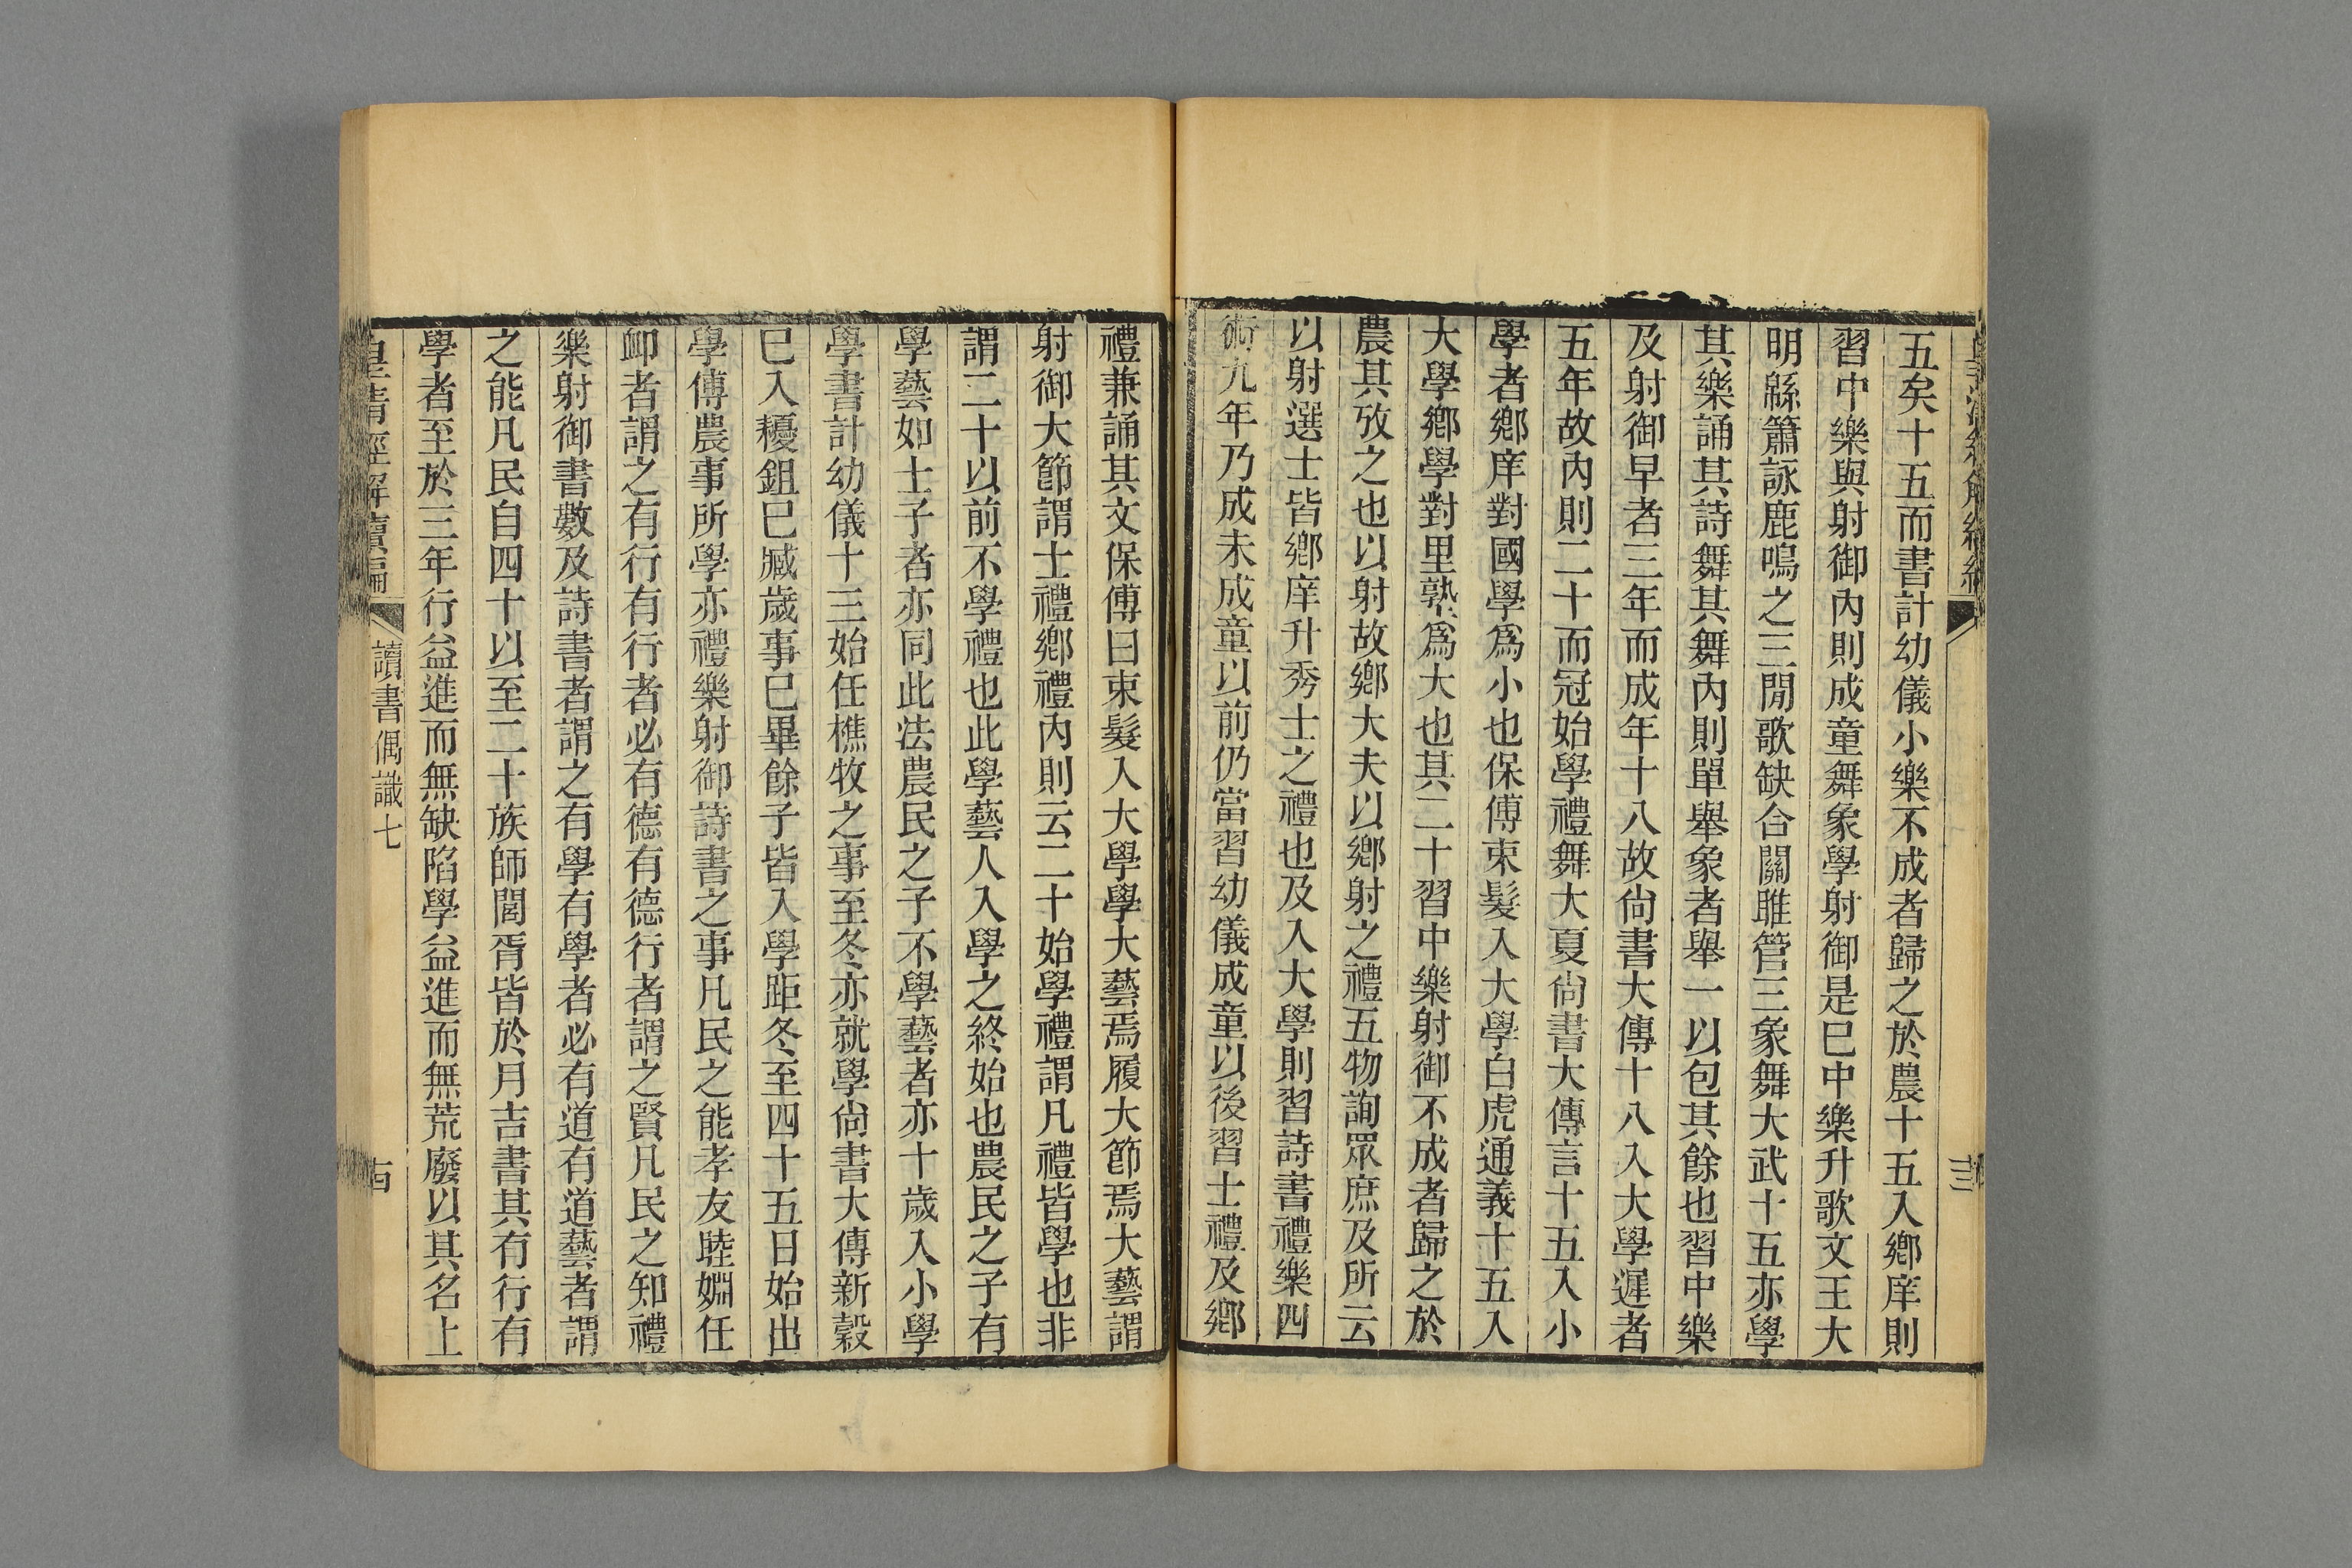 五矣十五而書計幼儀小樂不成者歸之於農十五入鄉庠則
習中樂與射御內則成童舞象學射御是已中樂升歌文王大
明緜簫詠鹿鳴之三閒歌缺合關雎管三象舞大武十五亦學
其樂誦其詩舞其舞內則單舉象者舉一以包其餘也習中樂
及射御早者三年而成年十八故尙書大傳十八入大學遲者
五年故內則二十而冠始學禮舞大夏尙書大傳言十五入小
學者鄉庠對國學爲小也保傅束髮入大學白虎通義十五入
大學鄉學對里塾爲大也其二十習中樂射御不成者歸之於
農其攷之也以射故鄉大夫以鄉射之禮五物詢眾庶及所云
以射選士皆鄉庠升秀士之禮也及入大學則習詩書禮樂四
術九年乃成未成童以前仍當習幼儀成童以後習士禮及鄉
禮兼誦其文保傅曰束髮入大學學大藝焉履大節焉大藝謂
射御大節謂士禮鄉禮內則云二十始學禮謂凡禮皆學也非
謂二十以前不學禮也此學藝人入學之終始也農民之子有
學藝如士子者亦同此法農民之子不學藝者亦十歲入小學
學書計幼儀十三始任樵牧之事至冬亦就學尙書大傳新穀
已入耰鉏已臧歲事已畢餘子皆入學距冬至四十五日始出
學傅農事所學亦禮樂射御詩書之事凡民之能孝友睦婣任
卹者謂之有行有行者必有德有德行者謂之賢凡民之知禮
樂射御書數及詩書者謂之有學有學者必有道有道藝者謂
之能凡民自四十以至二十族師閭胥皆於月吉書其有行有
學者至於三年行益進而無缺陷學益進而無荒廢以其名上
皇清經解續編
讀書偶識七